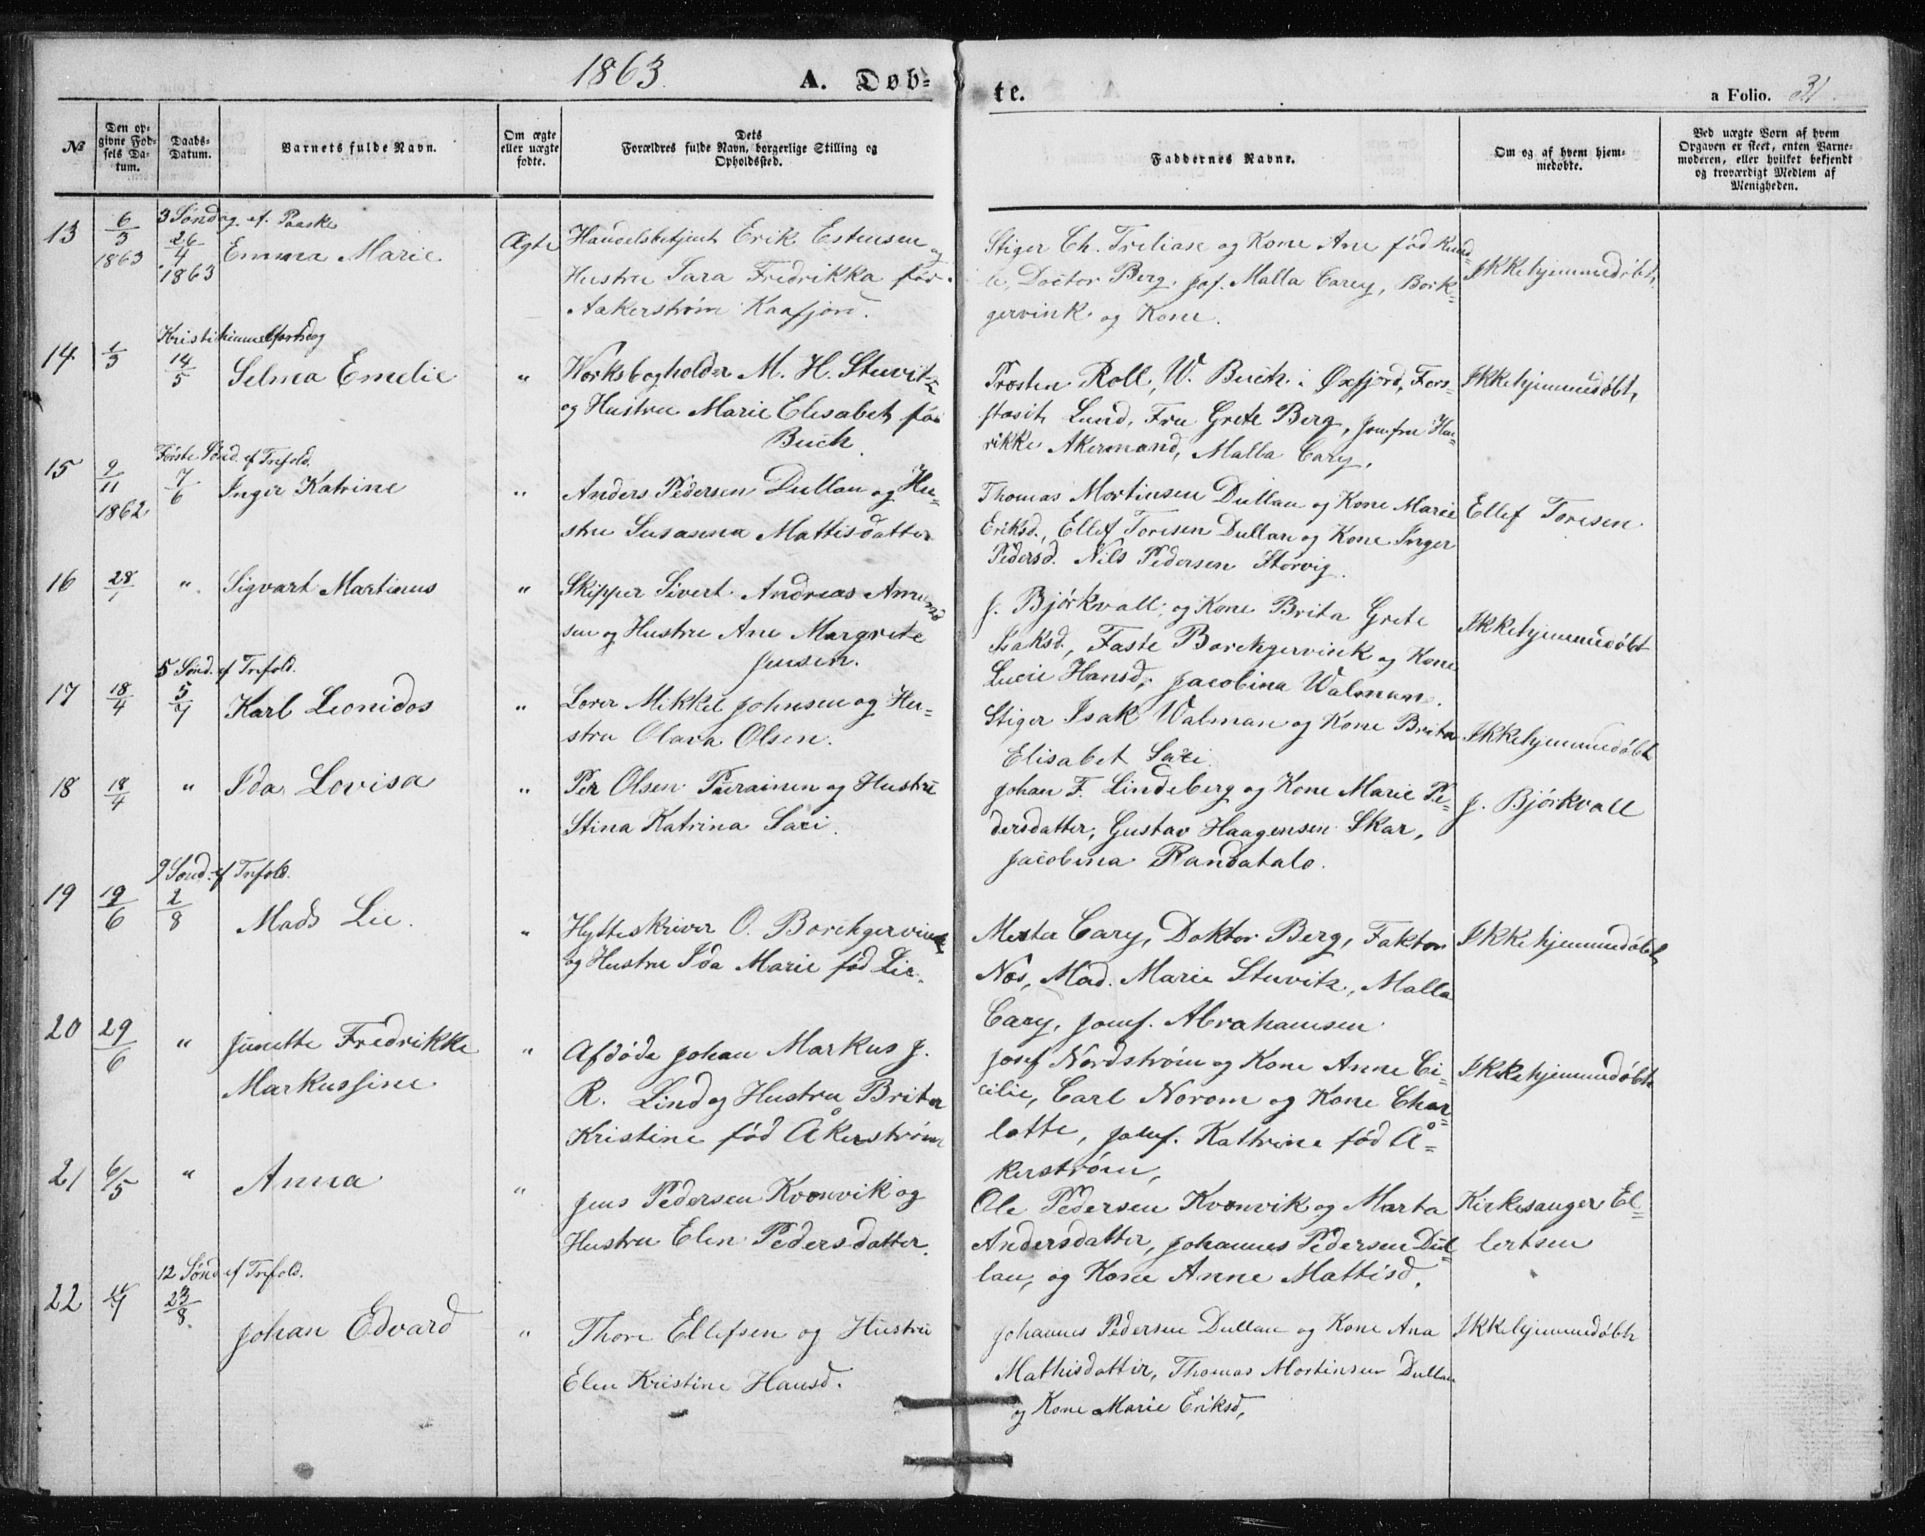 1863.
A. Døb=
te.
a Folio. 31.
№
Den op-
givne Fød-
sels Da-
tum.
Daabs-
Datum.
Barnets fulde Navn.
Om ægte
eller uægte
fødte.
Dets
Forældres fulde Navn, borgerlige Stilling og
Opholdssted.
Faddernes Navne.
Om og af hvem hjem-
medøbt.
Ved uægte Børn af hvem
Opgaven er skeet, enten Barne-
moderen, eller hvilket bekjendt
og troværdigt Medlem af
Menigheden.
3 Søndag ef. Paaske
13 6/3 1863 26/4 1863 Emma Marie Ægte
Handelsbetjent Erik Estensen og
Hustru Sara Fredrikka fød
Aakerstrøm Kaafjord.
Stiger Ch. Treliase og Kone Ane fød
Doctor Berg, Jof. Malla Cary, Bork-
gervink og Kone.
Ikkehjemmedøbt.
Kristi himmelfartsdag
14 1/3 14/5 Selma Emelie "
Værksbogholder M. H. Stuvitz
og Hustru Marie Elisabet fød
Buch.
Prosten Roll, W. Buch i Øxfjord, Fors-
Lund, Fru Grete Berg, Jomfru Hen-
rikke Akermand, Malla Cary,
Ikkehjemmedøbt,
Første Sønd. ef Trefold.
15 9/11 1862 7/6 Inger Katrine "
Anders Pedersen Dullau og Hu-
stru Susanna Mattisdatter
Thomas Mortinsen Dullau og Kone Marie
Eriksd., Ellef Toresen Dullau og Kone Inger
Pedersd. Nils Pedersen Storvig.
Ellef Toresen
16 28/1 " Sigvart Martinus "
Skipper Sivert Andreas Amund
sen og Hustru Ane Margrete
Jensen.
J. Bjørkvall og Kone Brita Grete
Isaksd., Faste Borchgervink og Kone
Lucie Hansd; Jacobina Walman.
Ikkehjemmedøbt
5 Sønd. ef Trefold.
17 18/4 5/7 Karl Leonidos "
Lover Mikkel Johnsen og Hu-
stru Olava Olsen.
Stiger Isak Walman og Kone Brita
Elisabet Sari.
Ikkehjemmedøbt
18 18/4 " Ida Lovisa "
Per Olsen Pairainen og Hustru
Stina Katrina Sari.
Johan F. Lindeberg og Kone Marie Pe-
dersdatter, Gustav Haagensen Skar,
Jacobina Randatalo.
J. Bjørkvall
9 Sønd. ef Trefold.
19 19/6 2/8 Mads Lie. "
Hytteskriver O. Borchgervink
og Hustru Ida Marie fød Lie.
Mester Cary, Doktor Berg, Faktor
Næs, Mad. Marie Stuvitz, Malla
Cary, Jomf. Abrahamsen.
Ikkehjemmedøbt,
20 29/6 " Junette Fredrikke
Markussine "
Afdøde Johan Markus J.
R. Lind og Hustru Brita
Kristine fød Åkerstrøm
Josef Nordstrøm og Kone Anne Ci-
cilie, Carl Norom og Kone Char-
lotte, Jomf. Kathrine fød Å-
kerstrøm,
Ikkehjemmedøbt
21 6/5 " Anna "
Jens Pedersen Kvænvik og
Hustru Elen Pedersdatter.
Ole Pedersen Kvænvik og Marta
Andersdatter, Johannes Pedersen Dul-
lau, og Kone Anne Mattisd.
Kirkesanger El-
lertsen
12 Sønd. ef Trefold.
22 23/8 Johan Edvard "
Thore Ellefsen og Hustru
Elen Kristine Hansd.
Johannes Pedersen Dullau og Kone Ana
Mathisdatter, Thomas Mortinsen Dullau
og Kone Marie Eriksd,
Ikkehjemmedøbt